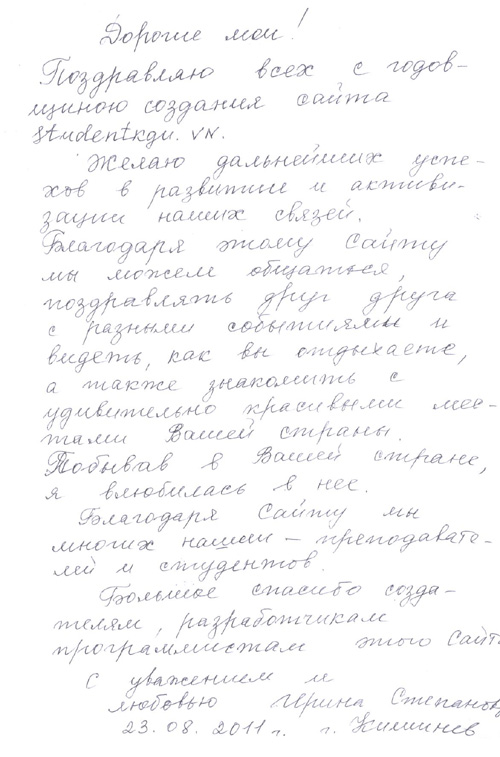 Дорогие мои!
Поздравляю всех с годов-
щиною создания сайта
studentкgu.vn.
Желаю дальнейших успе-
хов в развитие и активи-
зации наших связей.
Благодаря этому Сайту
мы можем общаться,
поздравлять друг друга
с разными событиями и
видеть, как вы отдыхаете,
а также знакомить с
удивительно красивыми мес-
тами Вашей страны.
Побывав в Вашей стране,
я влюбилась в нее.
Благодаря Сайту мы
многих нашли – преподавате-
лей и студентов.
Большое спасибо созда-
телям, разработчикам
программистам этого Сайт.
С уважением и
любовью Ирина Степанов
23.08.2011г. г. Кишинев